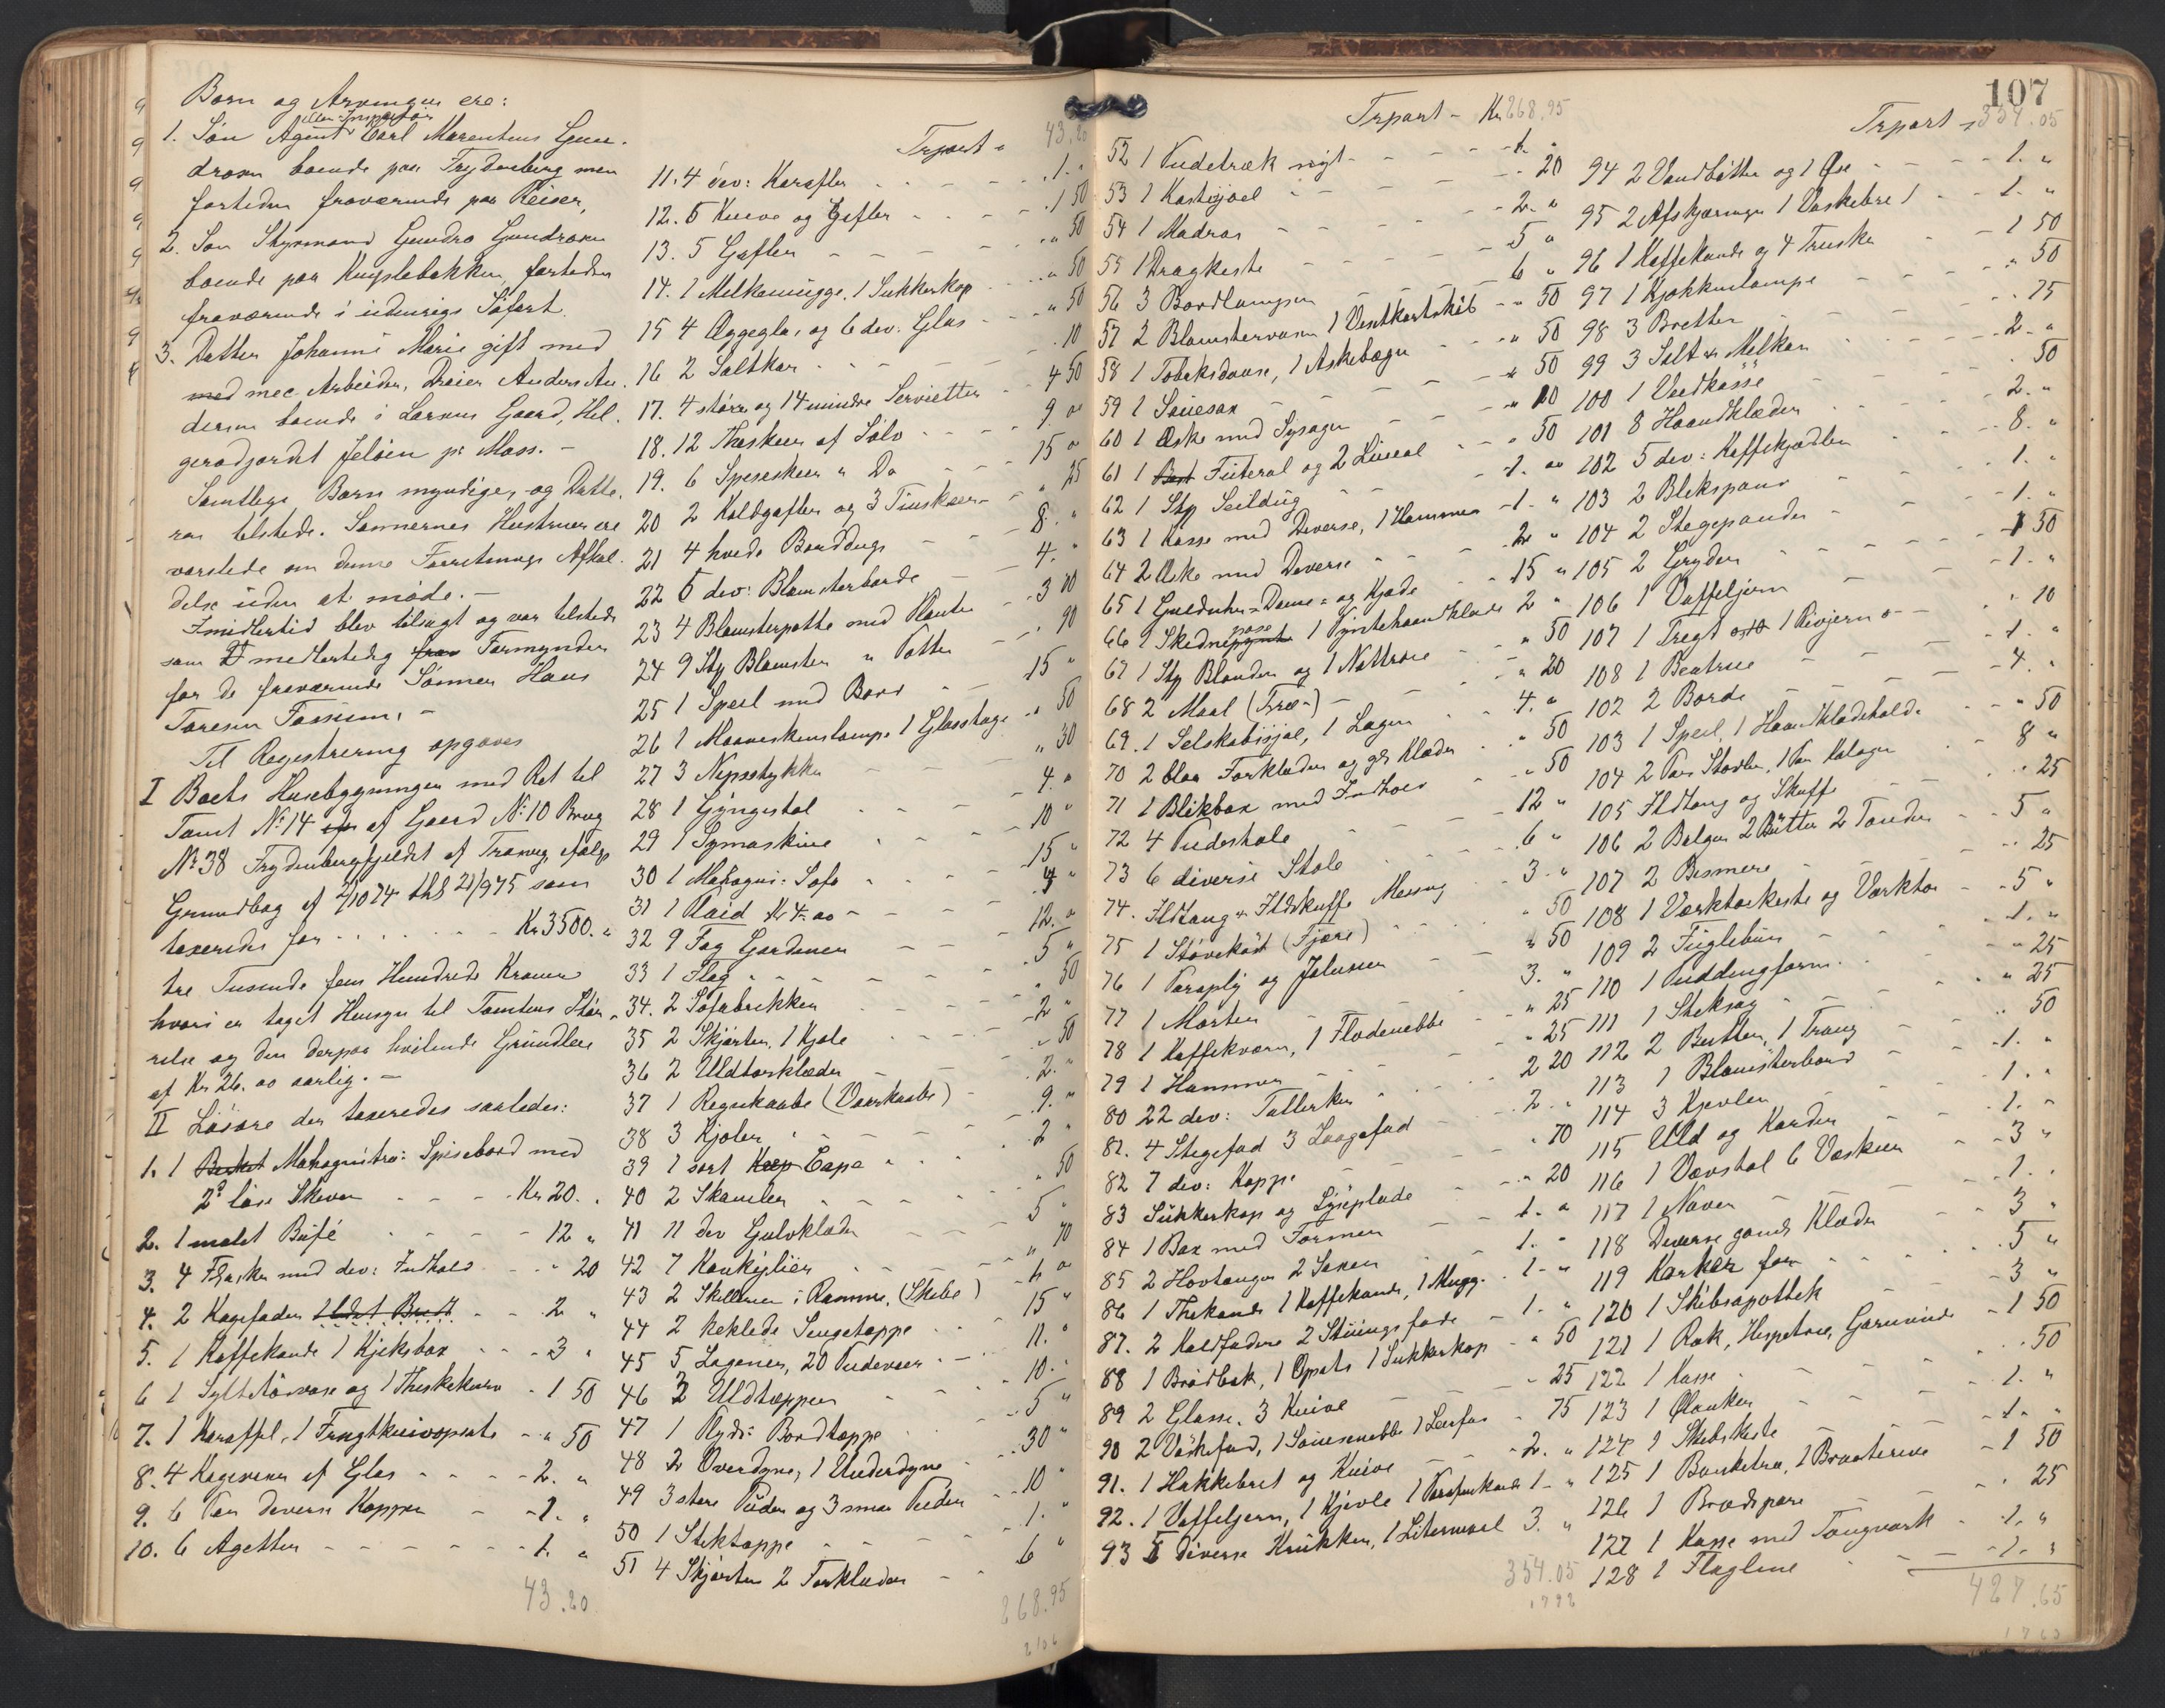 Børn og Arvinger ere:
1. Søn Agent eller Inspektør Carl Marentius Gun-
drosen boende paa Frydenberg men
fortiden fraværende paa Reiser,
2. Søn Styrmand Gundro Gundrosen
boende paa Kuyslebakken, fortiden
fraværende i udenrigs Søfart.
3. Datter Johanne Marie gift med
med mec. Arbeider, Dreier Anders An-
dersen boende i Larsens Gaard, Hel-
gerødjordet Jeløen pr Moss. -
Samtlige Børn myndige, og Datte-
ren tilstede. Sønnernes Hustruer ere
varslede om denne Forretnings Afhol-
delse uden at møde. -
Imidlertid blev tilsagt og var tilstede
som midlertidig Formynder
for de fraværende Sønner Hans
Toresen Fossum. -
Til Registrering opgaves
I Boets Husebygninger med Ret til
Tomt No 14 af Gaard No 10 Brug
No 38 Frydenbergfjeldet af Tranvg, ifølge
Grundbog af 2/10 74 thl 21/9 75 som
taxeredes for . . . . . Kr 3500. "
tre Tusende fem Hundrede Kroner
hvori er taget Hensyn til Tomtens Stør-
relse og den derpaa hvilende Grundleie
af Kr 26. 00 aarlig. -
II Løsøre der taxeredes saaledes:
1. 1 Mahognitræ: Spisebord med
2 løse Skiver - - - Kr 20. "
2. 1 malet Büfé - - - - 12 "
3. 4 Flasker med dev: Indhold - - " 20
4. 2 Kagefader 1 Ildst Brett - - 2 "
5. 1 Kaffekande 1 Kjeksbox - - - 3 "
6 1 Syltetøivase og 1 Theskekurv - 1 50
7. 1 Karaffel, 1 Frugtknivopsats - " 50
8. 4 Kagevaser af Glas - - - - 2. "
9. 6 Par Deverse Kopper - - 1. "
10. 6 Agetter - - - - - 1. "
43.20
Trpart " 43.20
11. 4 dev: Karafler - - - - 1. "
12. 5 Knive og Gafler - - - 1 50
13. 5 Gafler - - - - " 50
14. 1 Melkemugge, 1 Sukkerkop - - " 50
15 4 Æggeglas og 6 dev: Glas - - " 50
16 2 Saltkar - - - - 10
17. 4 større og 14 mindre Servietter - - 4 50
18. 12 Theskeer af Sølv - - - 9 00
19. 6 Speseskeer " Do - - 15 "
20 2 Kaldgafler og 3 Tinskeer - - " 25
21 4 hvide Bordduge - - - 8. "
22 5 dev: Blomsterborde - - 4. "
23 4 Blomsterpotte med Planter - - 3 00
24 9 Stp Blomster " Potter - - " 90
25 1 Speil med Bord - - 15 "
26 1 Maaneskinslampe 1 Glasstage - - " 50
27 3 Nipsstykker - - - " 30
28 1 Gyngestol - - - 4. "
29 1 Symaskine - - - 10 "
30 1 Mahogni: Sofa - - - 15 "
31 1 Plaid Kr 4. 00 - - - 4 "
32 9 Fag Gardiner - - - 12. "
33 1 Flag - - - - 5 "
34. 2 Sofabrikker - - - " 50
35 2 Skjørter, 1 Kjole - - - 2 "
36 2 Uldtørklæder - - - " 50
37 1 Regnkaabe (Vaarkaabe) - - 2. "
38 3 Kjoler - - - - 9. "
39 1 sort Cape - - - 2 "
40 2 Skamler - - - " 50
41 11 dev Gulvklæder - - - 5 "
42 7 Konkylier - - - " 70
43 2 Skillerier i Ramme, (Skibe) - 4 00
44 2 heklede Sengetæppe - - 15 "
45 5 Lagener, 20 Pudevaer - - 11. "
46 2 Uldtæpper - - - 10. "
47 1 Plyds: Bordtæppe - - 5 "
48 2 Overdyner, 1 Underdyne - - 30 "
49 3 store Puder og 3 smaa Puder - - 10 "
50 1 Stiktæppe - - - 1. "
51 4 Skjorter 2 Forklæder - - 6 "
268.95
2106
107
Trpart - Kr 268.95
52 1 Pudetræk nyt - - - 1. "
53 1 Kastesjael - - - " 20
54 1 Madras - - - - 2. "
55 1 Dragkiste - - - - 5 "
56 3 Bordlamper - - - - 6 "
57 2 Blomstervaser 1 Visitkortskål - - " 50
58 1 Tobaksdaase, 1 Askebæger - - " 50
59 1 Sauesax - - - " 50
60 1 Æske med Sysager - - - " 20
61 1 Füteral og 2 Lineal - - " 50
62 1 Stp Seildug - - - 1. 00
63 1 Kasse med Deverse, 1 Hammer - 1. "
64 2 Æske med Deverse - - - 2 "
65 1 Guldühr - Dame - og Kjæde - - 15 "
66 1 Skidnepose 1 Pyntehaandklæde 2 "
67 1 Stp Blonder og 1 Nattrøie - - " 50
68 2 Maal (Træ-) - - - " 20
69. 1 Selskabssjal, 1 Lagen - - - 4. "
70 2 blaa Forklæder og gl Klæder - - " 50
71 1 Blikbox med Indhold - - " 50
72 4 Pudestole - - - 12 "
73 6 diverse Stole - - - 6 "
74. Ildtang & Ildskuffe Messing - - 3. "
75 1 Støvekost (Fjære) - - - " 50
76 1 Paraply og Jalusier - - " 50
77 1 Morter - - - - 3. "
78 1 Kaffekværn, 1 Flødenebbe - - " 25
79 1 Hammer - - - " 25
80 22 dev: Tallerker - - - 2 20
81. 4 Stegefad 3 Laagefad - - - 2. "
82 7 dev: Koppe - - - " 70
83 Sukkerkop og Lyseplade - - - " 20
84 1 Box med Former - - - 1. "
85 2 Hovtanger 2 Saxer - - - 1. "
86 1 Thekande 1 Kaffekande, 1 Mugg. - 1. "
87. 2 Kaldfadere 2 Stüingsfade - - 1. "
88 1 Brødbak, 1 Opsats 1 Sukkerkop - " 50
89 2 Glasse. 3 Knive - - " 25
90 2 Vaskefad, 1 Sausenebbe 1 Leirfas - " 75
91. 1 Hakkebret og Knive - - 2. "
92. 1 Vaffeljern, 1 Kjevle 1 Parafinkande 1 - "
93 5 diverse Krukker, 1 Litermaal 3. "
354.05
1792
Trpart - 354.05
94 2 Vandbøtter og 1 Øse - - - 1. "
95 2 Afskjæringer 1 Vaskebret - - 1. "
96 1 Kaffekande og 4 Trusker - - 1 50
97 1 Kjøkkenlampe - - - " 50
98 3 Bretter - - - " 75
99 3 Salt & Melkar - - - 2. "
100 1 Vedkasse - - - " 50
101 8 Haandklæder - - - 2. "
102 5 dev: Kaffekjedler - - - 8. "
103 2 Blikspand - - - 1. "
104 2 Stegepander - - - 1. "
105 2 Gryder - - - 1 50
106 1 Vaffeljern - - - 1. "
107 1 Tregt 1 Rivjern - - " 10
108 1 Bentræe - - - 1. "
102 2 Borde - - - 4. "
103 1 Speil, 1 Haandklædeholder - - " 50
104 2 Par Støvler, 1 Par Kalager - - 8 "
105 Ildtang og Skuffe - - " 25
106 2 Balger 2 Bøtter 2 Tønder - - 5 "
107 2 Bismere - - - " 25
108 1 Værktøikiste og Værktøi - - 5 "
109 2 Fuglebur - - - 1. "
110 1 Puddingform - - - " 25
111 1 Stiksag - - - " 25
112 2 Bøtter, 1 Traug - - " 50
113 1 Blomsterbord - - - 1. "
114 3 Kjevler - - - 1. "
115 Uld og Karder - - - 1. "
116 1 Vævstol 6 Væskeer - - - 3 "
117 1 Naver - - - 1. "
118 Deverse gamle Klæder - - 3 "
119 Karker for - - - 5 "
120 1 Skibsapothek - - - 3 "
121 1 Rok, Hespetræ, Garnvinde - 1 50
122 1 Kasse - - - " 50
123 1 Planker - - - 1. "
124 1 Skibskiste - - - 1. "
125 1 Banketræ, 1 Braatereve - 1 50
126 1 Brædspare - - - " 25
127 1 Kasse med Tougværk - - 1. "
128 1 Flagline - - - 1. "
427.65
1762